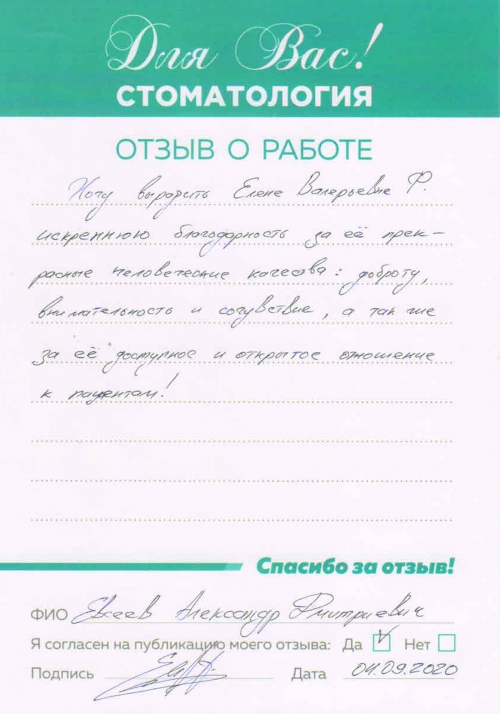 Для Вас!
СТОМАТОЛОГИЯ
ОТЗЫВ О РАБОТЕ
Хочу выразить Елене Валерьевне Ф.
искреннюю благодарность за её прек-
расные человеческие качества: доброту,
внимательность и сочувствие, а так же
за её доступное и открытое отношение
к пациентам!
Спасибо за отзыв!
ФИО Евсеев Александр Дмитриевич
Я согласен на публикацию моего отзыва: Да Нет
Подпись Дата 04.09.2020